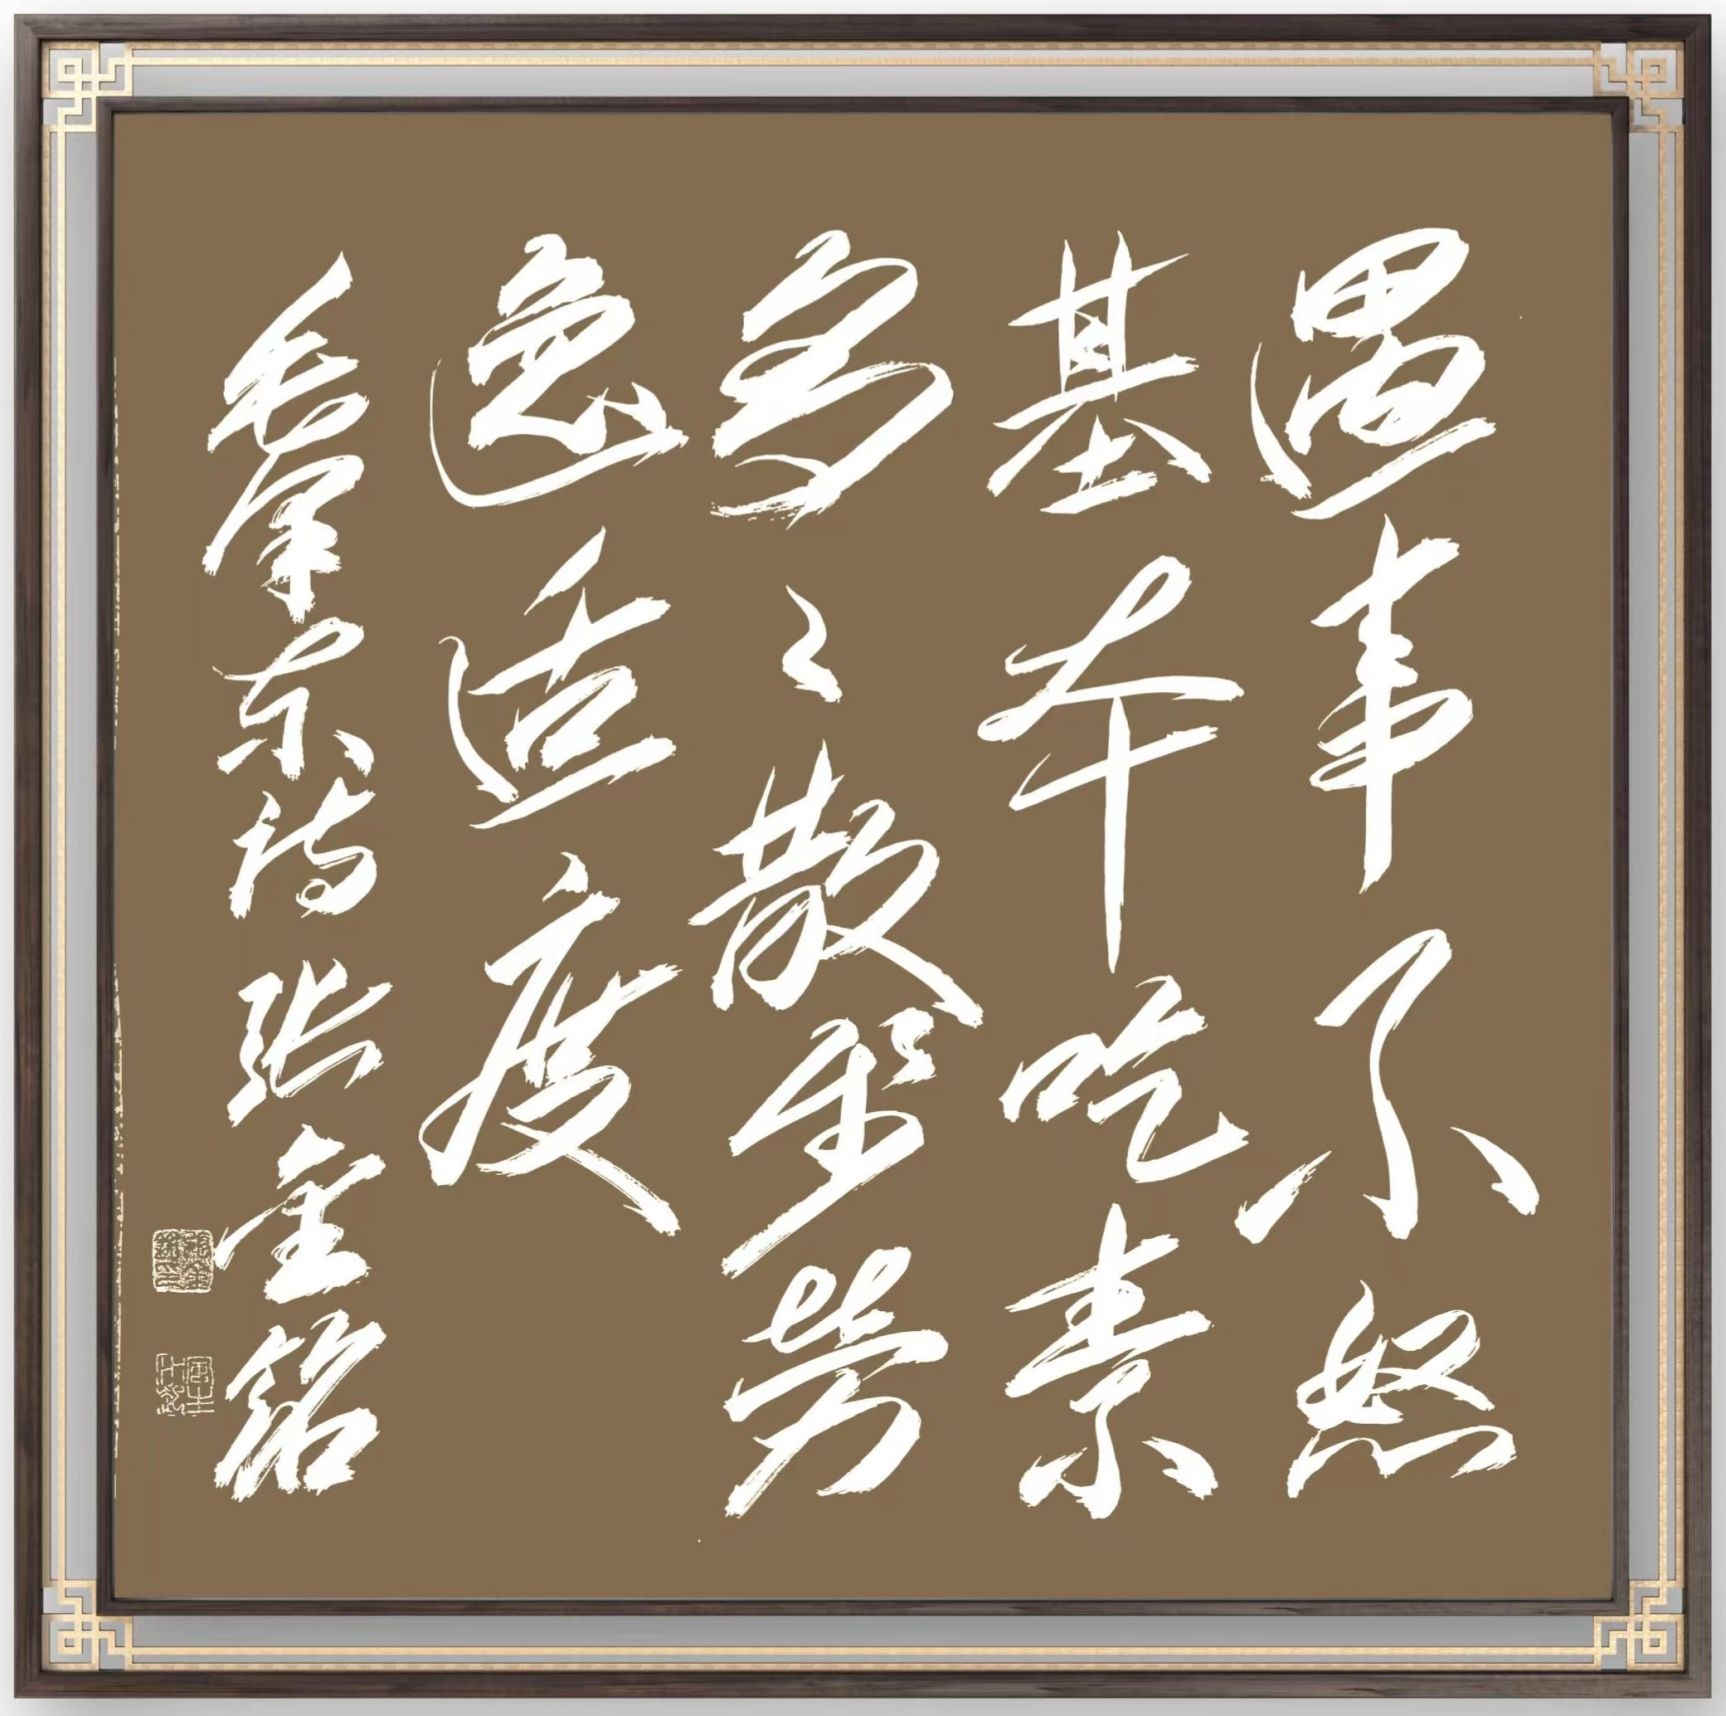 遇事不怒
基本吃素
多多散步劳
逸适度
毛泽东诗张金铭